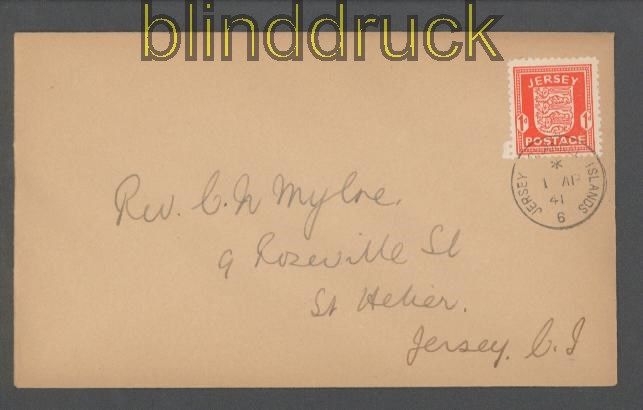 blinddruck
JERSEY
1D 1D
POSTAGE
JERSEY ISLANDS
*
1 AP
41
6
Rev. C. N Mylne,
9 Roseville St
St Helier.
Jersey. C. I